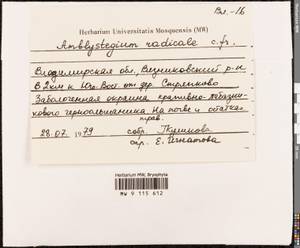 Вл.-16
Herbarium Universitatis Mosquensis (MW)
Amblystegium radicale c.fr.
Владимирская обл., Вязниковский р-н
В 2 км к Юго-Вост. от дер.
Заболоченная окраина крапивно-лабазни-
кового черноольшаника. На почве и
трав.
28.07.1979 собр.
опр. Е. Игнатова
Herbarium MW, Bryophyta
MW 9 115 612